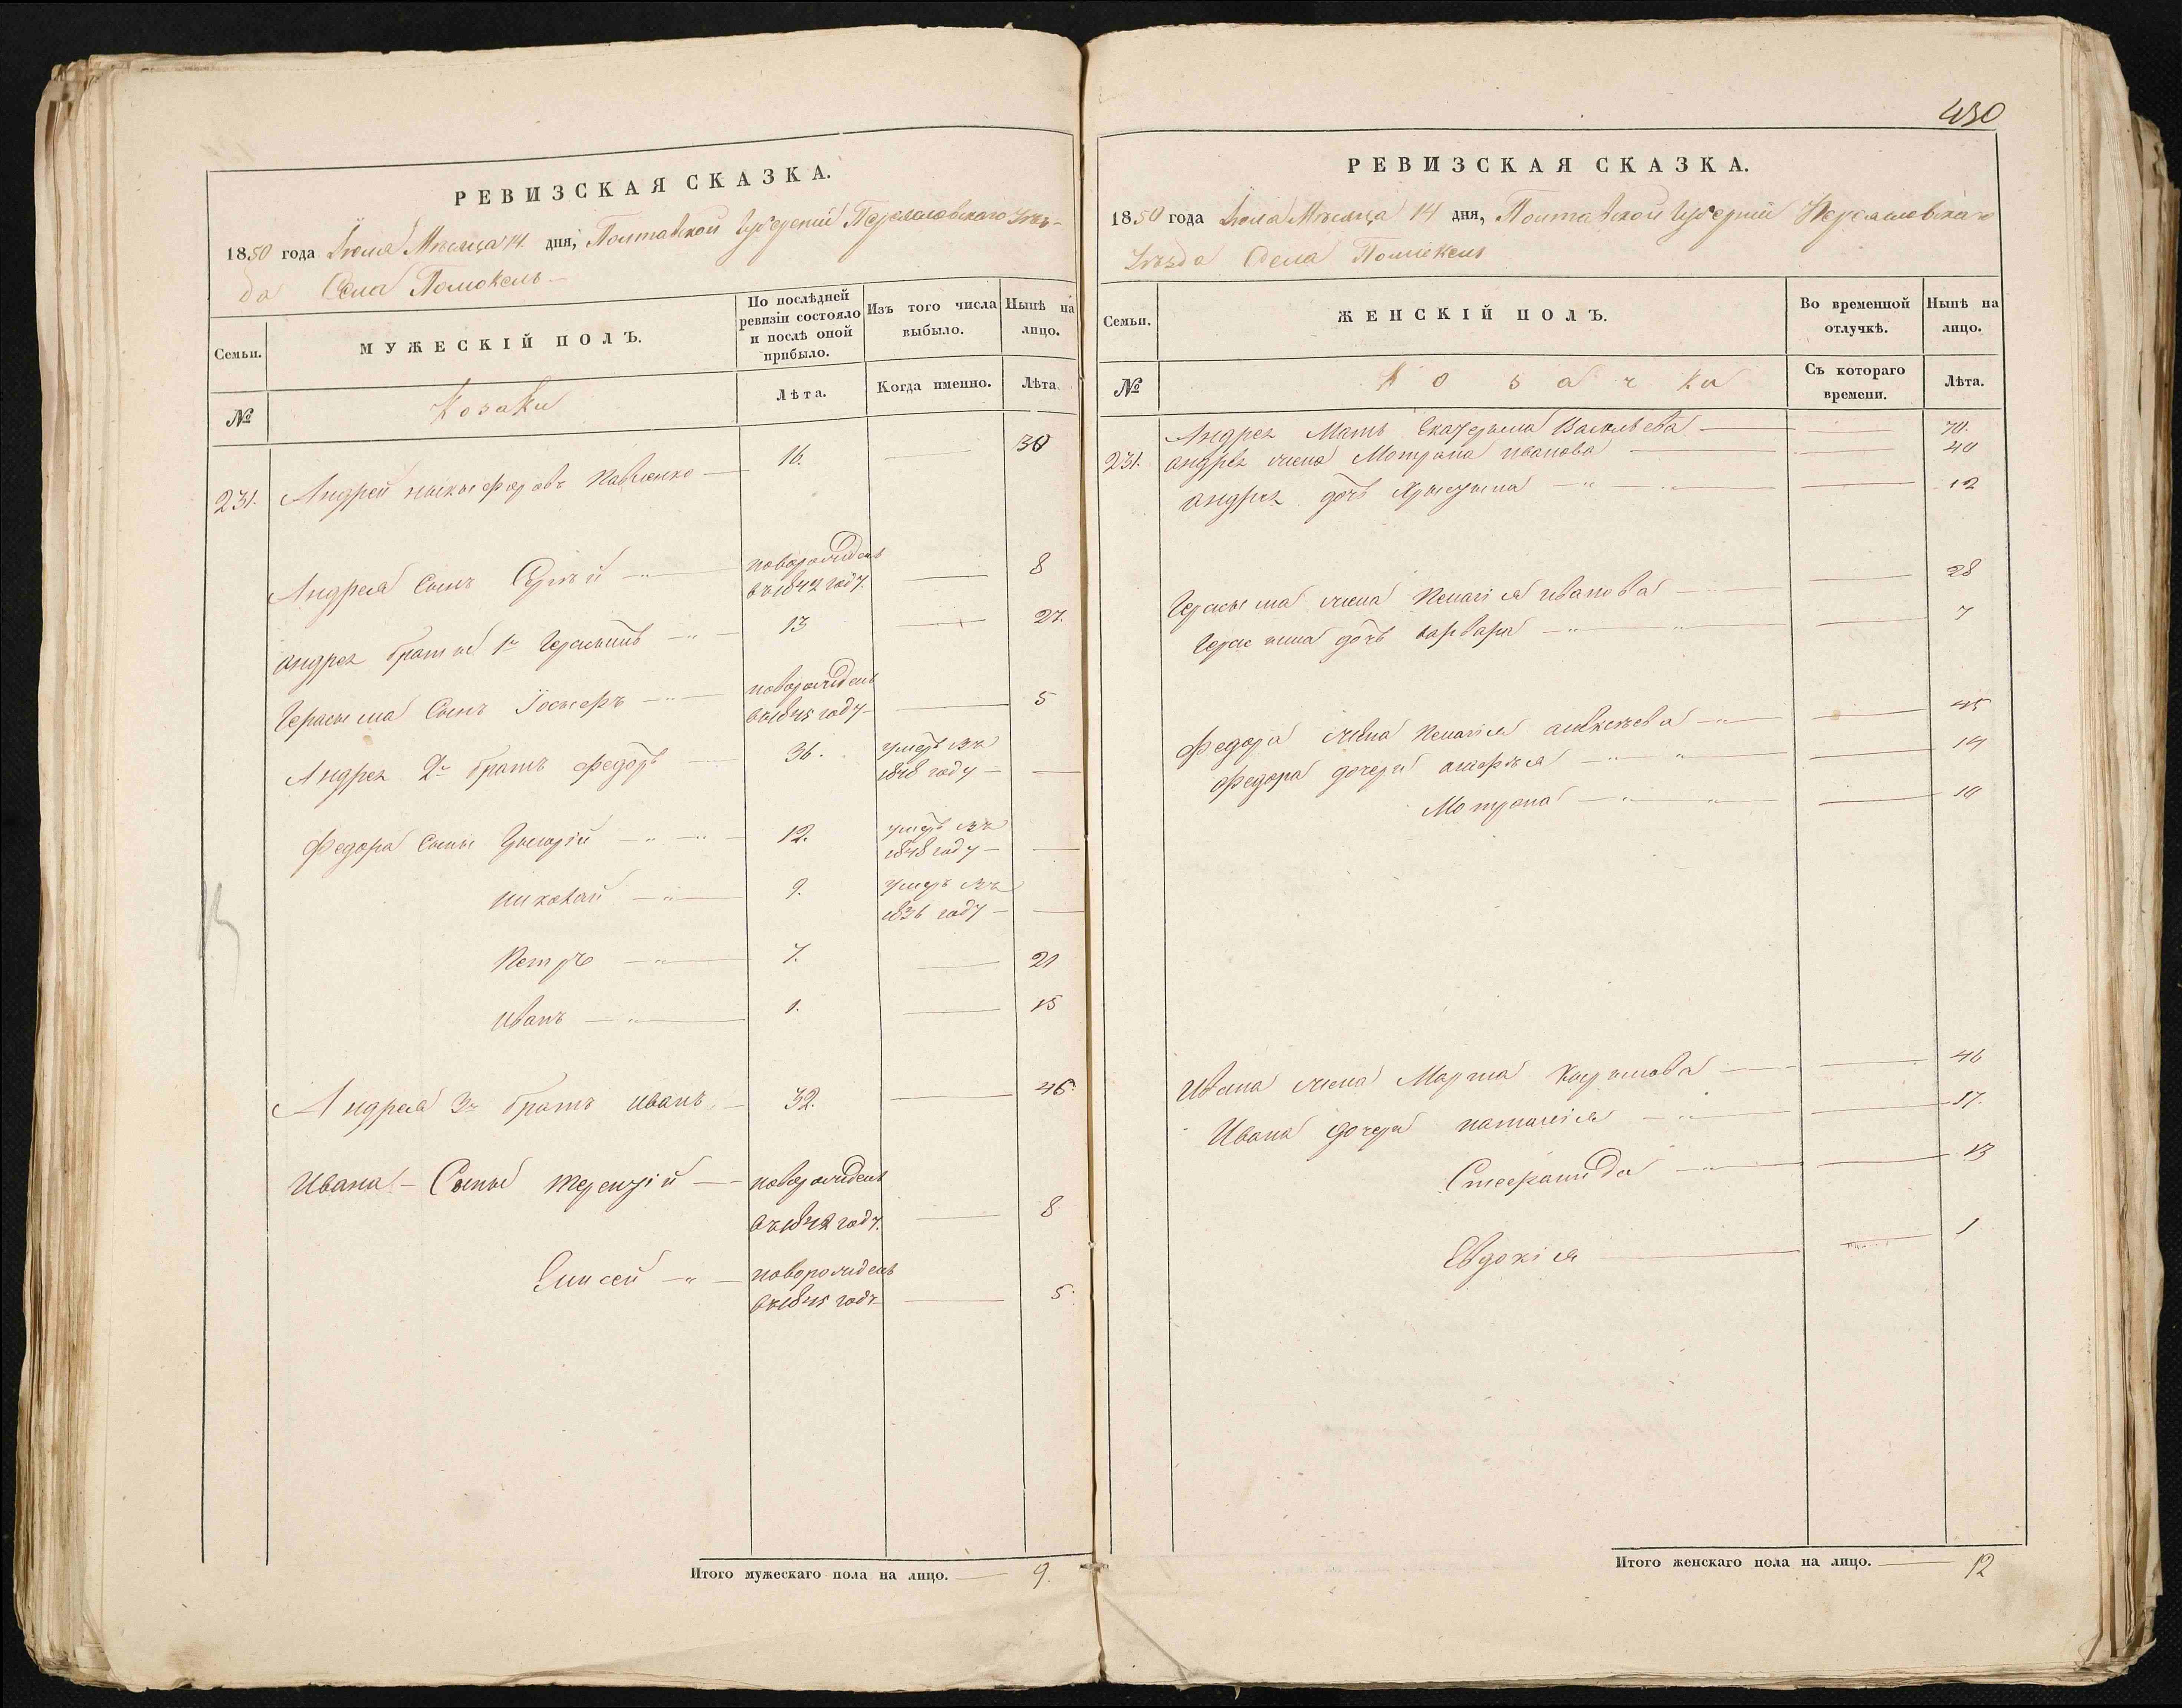 РЕВИЗСКАЯ СКАЗКА.
1850 года Іюля Мѣсяца 14 дня, Полтавской Губерніи Переяславскаго Уѣз-
да Села Помокель
Семьи.
МУЖЕСКІЙ ПОЛЪ.
По послѣдней ревизіи состояло и послѣ оной прибыло.
Изъ того числа выбыло.
Нынѣ на лицо.
№
Козаки
Лѣта.
Когда именно.
Лѣта.
231. Андрей Никифоровъ Павленко 16. 30
Андрея Сынъ Сергѣй новорожденъ въ 1842 году. 8
Андрея братья 1й Герасимъ 13 27.
Герасима Сынъ Іосифъ новорожденъ въ 1845 году 5
Андрея 2й братъ Федоръ 36. умеръ въ 1848 году
Федора Сыны Григорій 12. умеръ въ 1848 году
Николай 9. умеръ въ 1836 году
Петръ 7. 21
Иванъ 1. 15
Андрея 3й братъ Иванъ 32. 46.
Ивана Сыны Терентій новорожденъ въ 1842 году. 8
Елисей новорожденъ въ 1845 году 5.
Итого мужескаго пола на лицо. 9.
430
РЕВИЗСКАЯ СКАЗКА.
1850 года Іюля Мѣсяца 14 дня, Полтавской Губерніи Переяславскаго
Уѣзда Села Помокель
Семьи.
ЖЕНСКІЙ ПОЛЪ.
Во временной отлучкѣ.
Нынѣ на лицо.
№
Козачки
Съ котораго времени.
Лѣта.
Андрея Мать Екатерина Васильева 70.
231. Андрея жена Мотрона Иванова 40
Андрея дочь Христина 12
Герасима жена Пелагія Иванова 28
Герасима дочь Варвара 7
Федора жена Пелагія Алексѣева 45
Федора дочери 14
Мотрона 10
Ивана жена Марѳа 46
Ивана дочери Наталія 17.
Степанида 13
Евдокія 1
Итого женскаго пола на лицо. 12